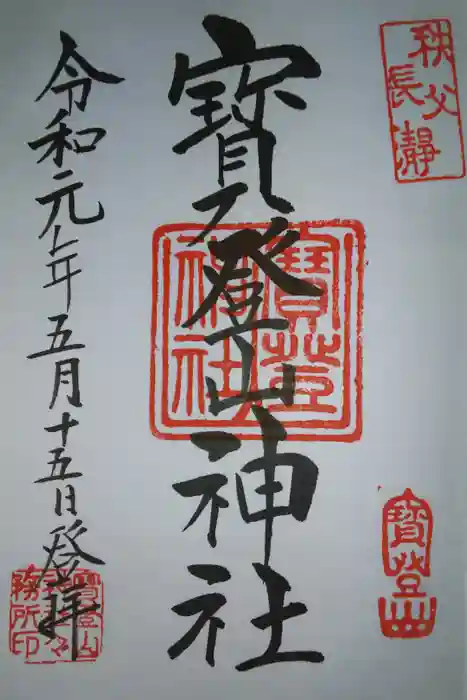 秩父
長瀞
寳登山神社
寳登
神社
寳登山
令和元年五月十五日登拝
寳登山
務所印